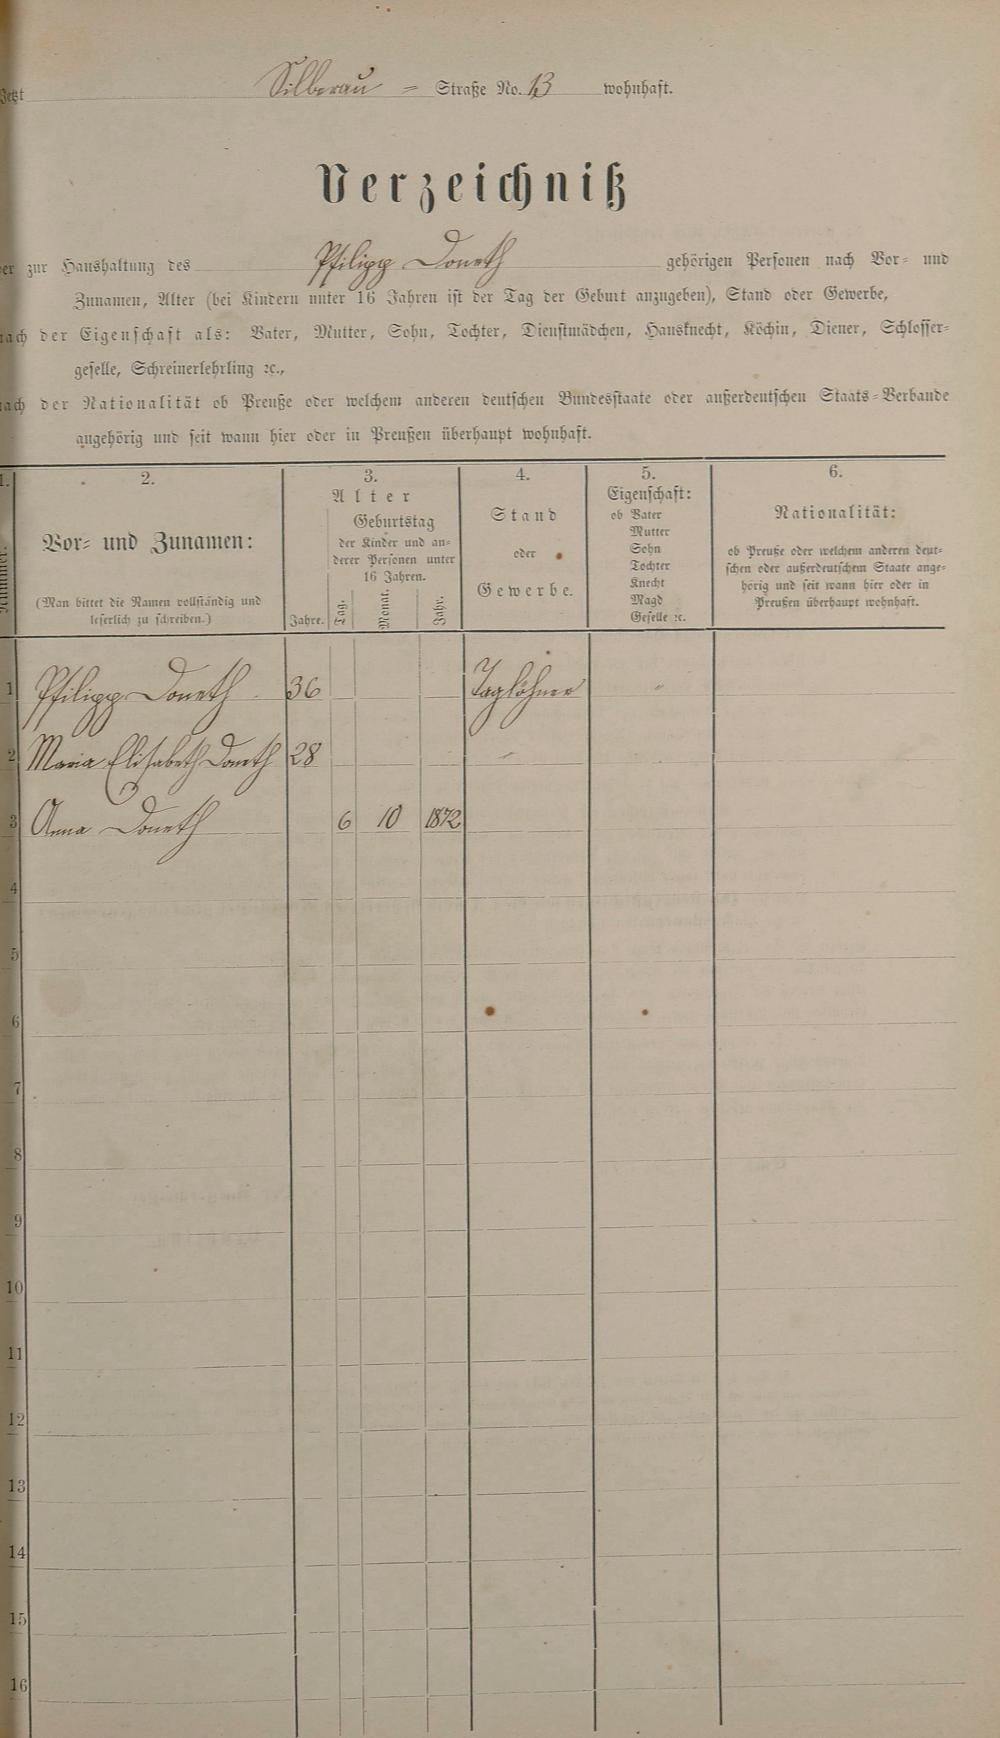 Jetzt Silberau = Straße No. 13 wohnhaft.
Verzeichniß
der zur Haushaltung des Philipp Doneth gehörigen Personen nach Vor= und
Zunamen, Alter (bei Kindern unter 16 Jahren ist der Tag der Geburt anzugeben), Stand oder Gewerbe,
nach der Eigenschaft als: Vater, Mutter, Sohn, Tochter, Dienstmädchen, Hausknecht, Köchin, Diener, Schlosser=
geselle, Schreinerlehrling ꝛc.,
nach der Nationalität ob Preuße oder welchem anderen deutschen Bundesstaate oder außerdeutschen Staats=Verbande
angehörig und seit wann hier oder in Preußen überhaupt wohnhaft.
1.
Nummer.
2.
Vor= und Zunamen:
(Man bittet die Namen vollständig und
leserlich zu schreiben.)
3.
Alter
Geburtstag
der Kinder und an=
derer Personen unter
16 Jahren.
Jahre. Tag. Monat. Jahr.
4.
Stand
oder
Gewerbe.
5.
Eigenschaft:
ob Vater
Mutter
Sohn
Tochter
Knecht
Magd
Geselle ꝛc.
6.
Nationalität:
ob Preuße oder welchem anderen deut=
schen oder außerdeutschem Staate ange=
hörig und seit wann hier oder in
Preußen überhaupt wohnhaft.
1 Philipp Doneth 36 Taglöhner "
2 Maria Elisabeth Doneth 28 -
3 Anna Doneth 6 10 1872
4
5
6
7
8
9
10
11
12
13
14
15
16